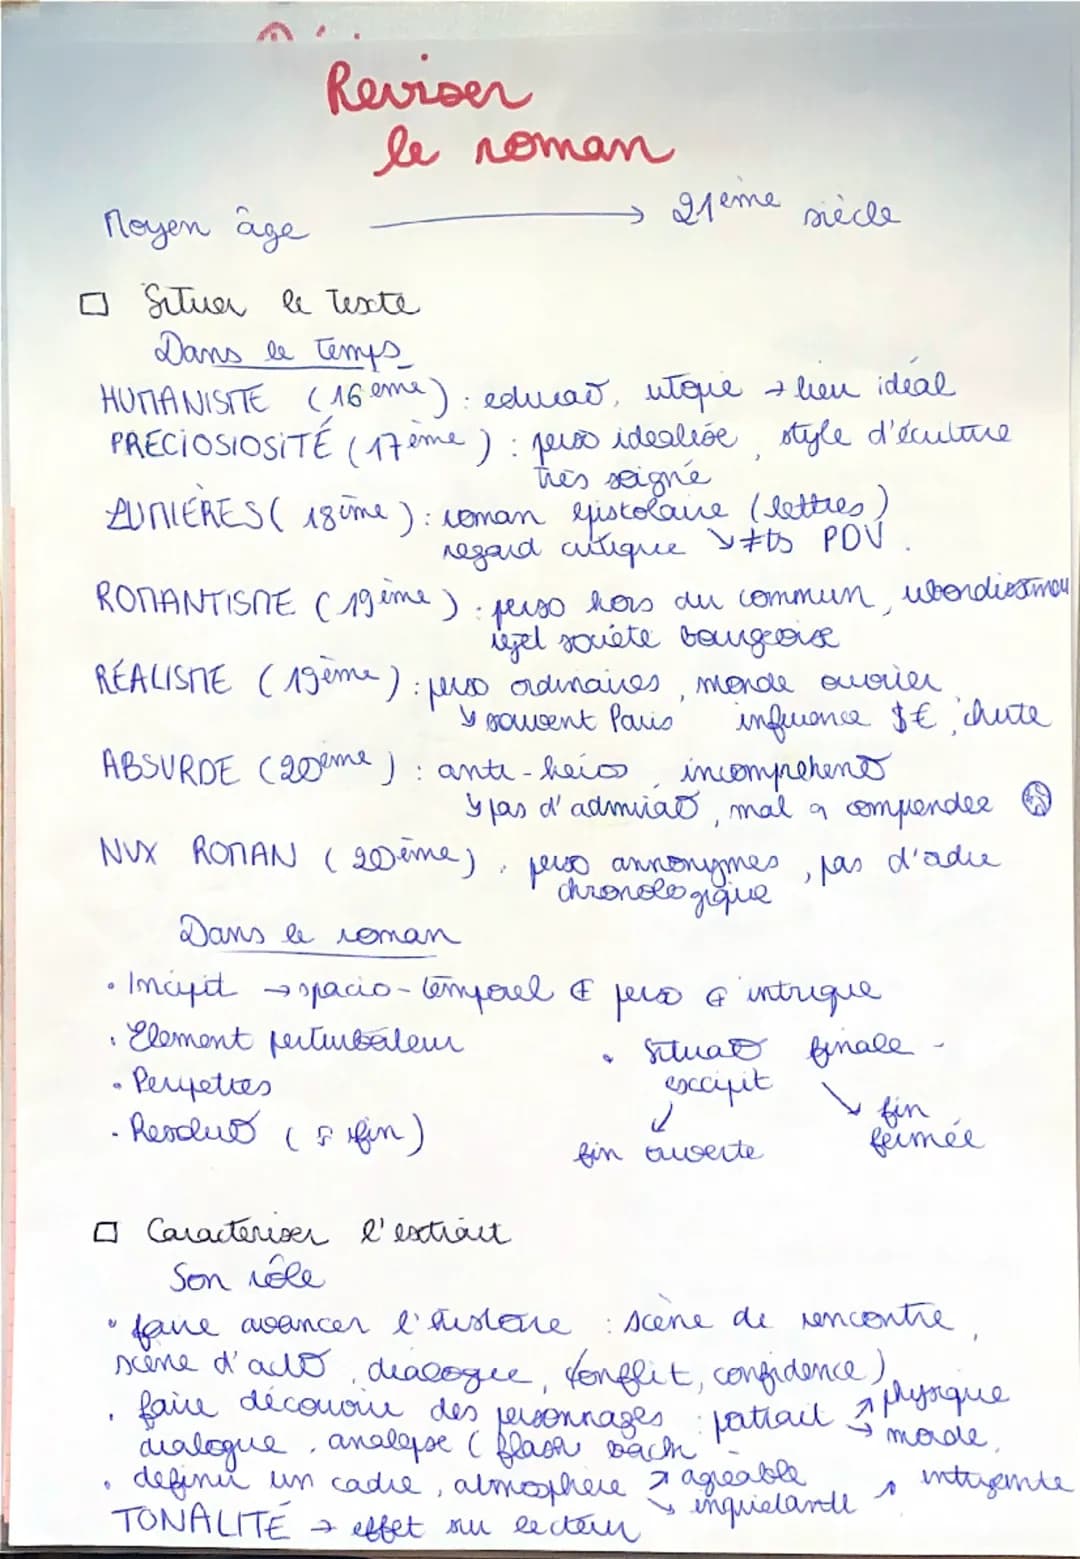 Reviser
le roman
Moyen âge → 21ème siècle
□ Situer le texte
Dans le temps
HUMANISTE (16eme) : educaō, utopie → lieu idéal
PRÉCIOSIOSITÉ (17ème) : perso idealise, style d'écriture
très soigné
LUMIÈRES (18ème) : roman epistolaire (lettres)
regard critique ↘ ≠ts PDV.
ROMANTISME (19ème) : perso hors du commun,
rejet société bourgeoise
RÉALISME (19ème) : perso ordinaires, monde ouvrier
↘ souvent Paris influence $€, chute
ABSURDE (20ème) : anti-héros, incompréhensō
↘ pas d'admiraō, mal a comprendre
NVX ROMAN (20ème), perso annonymes, pas d'ordre
chronologique
Dans le roman
• Incipit → spacio-temporel et perso et intrigue
• Element perturbateur
• Situaō finale -
• Peripeties
excipit
• Resoluō (fin)
↙ ↘
fin ouverte
fin fermée
□ Caractériser l'extrait
Son rôle
• faire avancer l'histoire : scène de rencontre,
scène d'actō, dialogue, conflit, confidence)
• faire découvrir des personnages : portrait ↗ physique
dialogue, analepse (flash back → morale.
• definir un cadre, atmosphère ↗ agréable
↘ inquiétante intrigante
TONALITÉ → effet sur lecteur